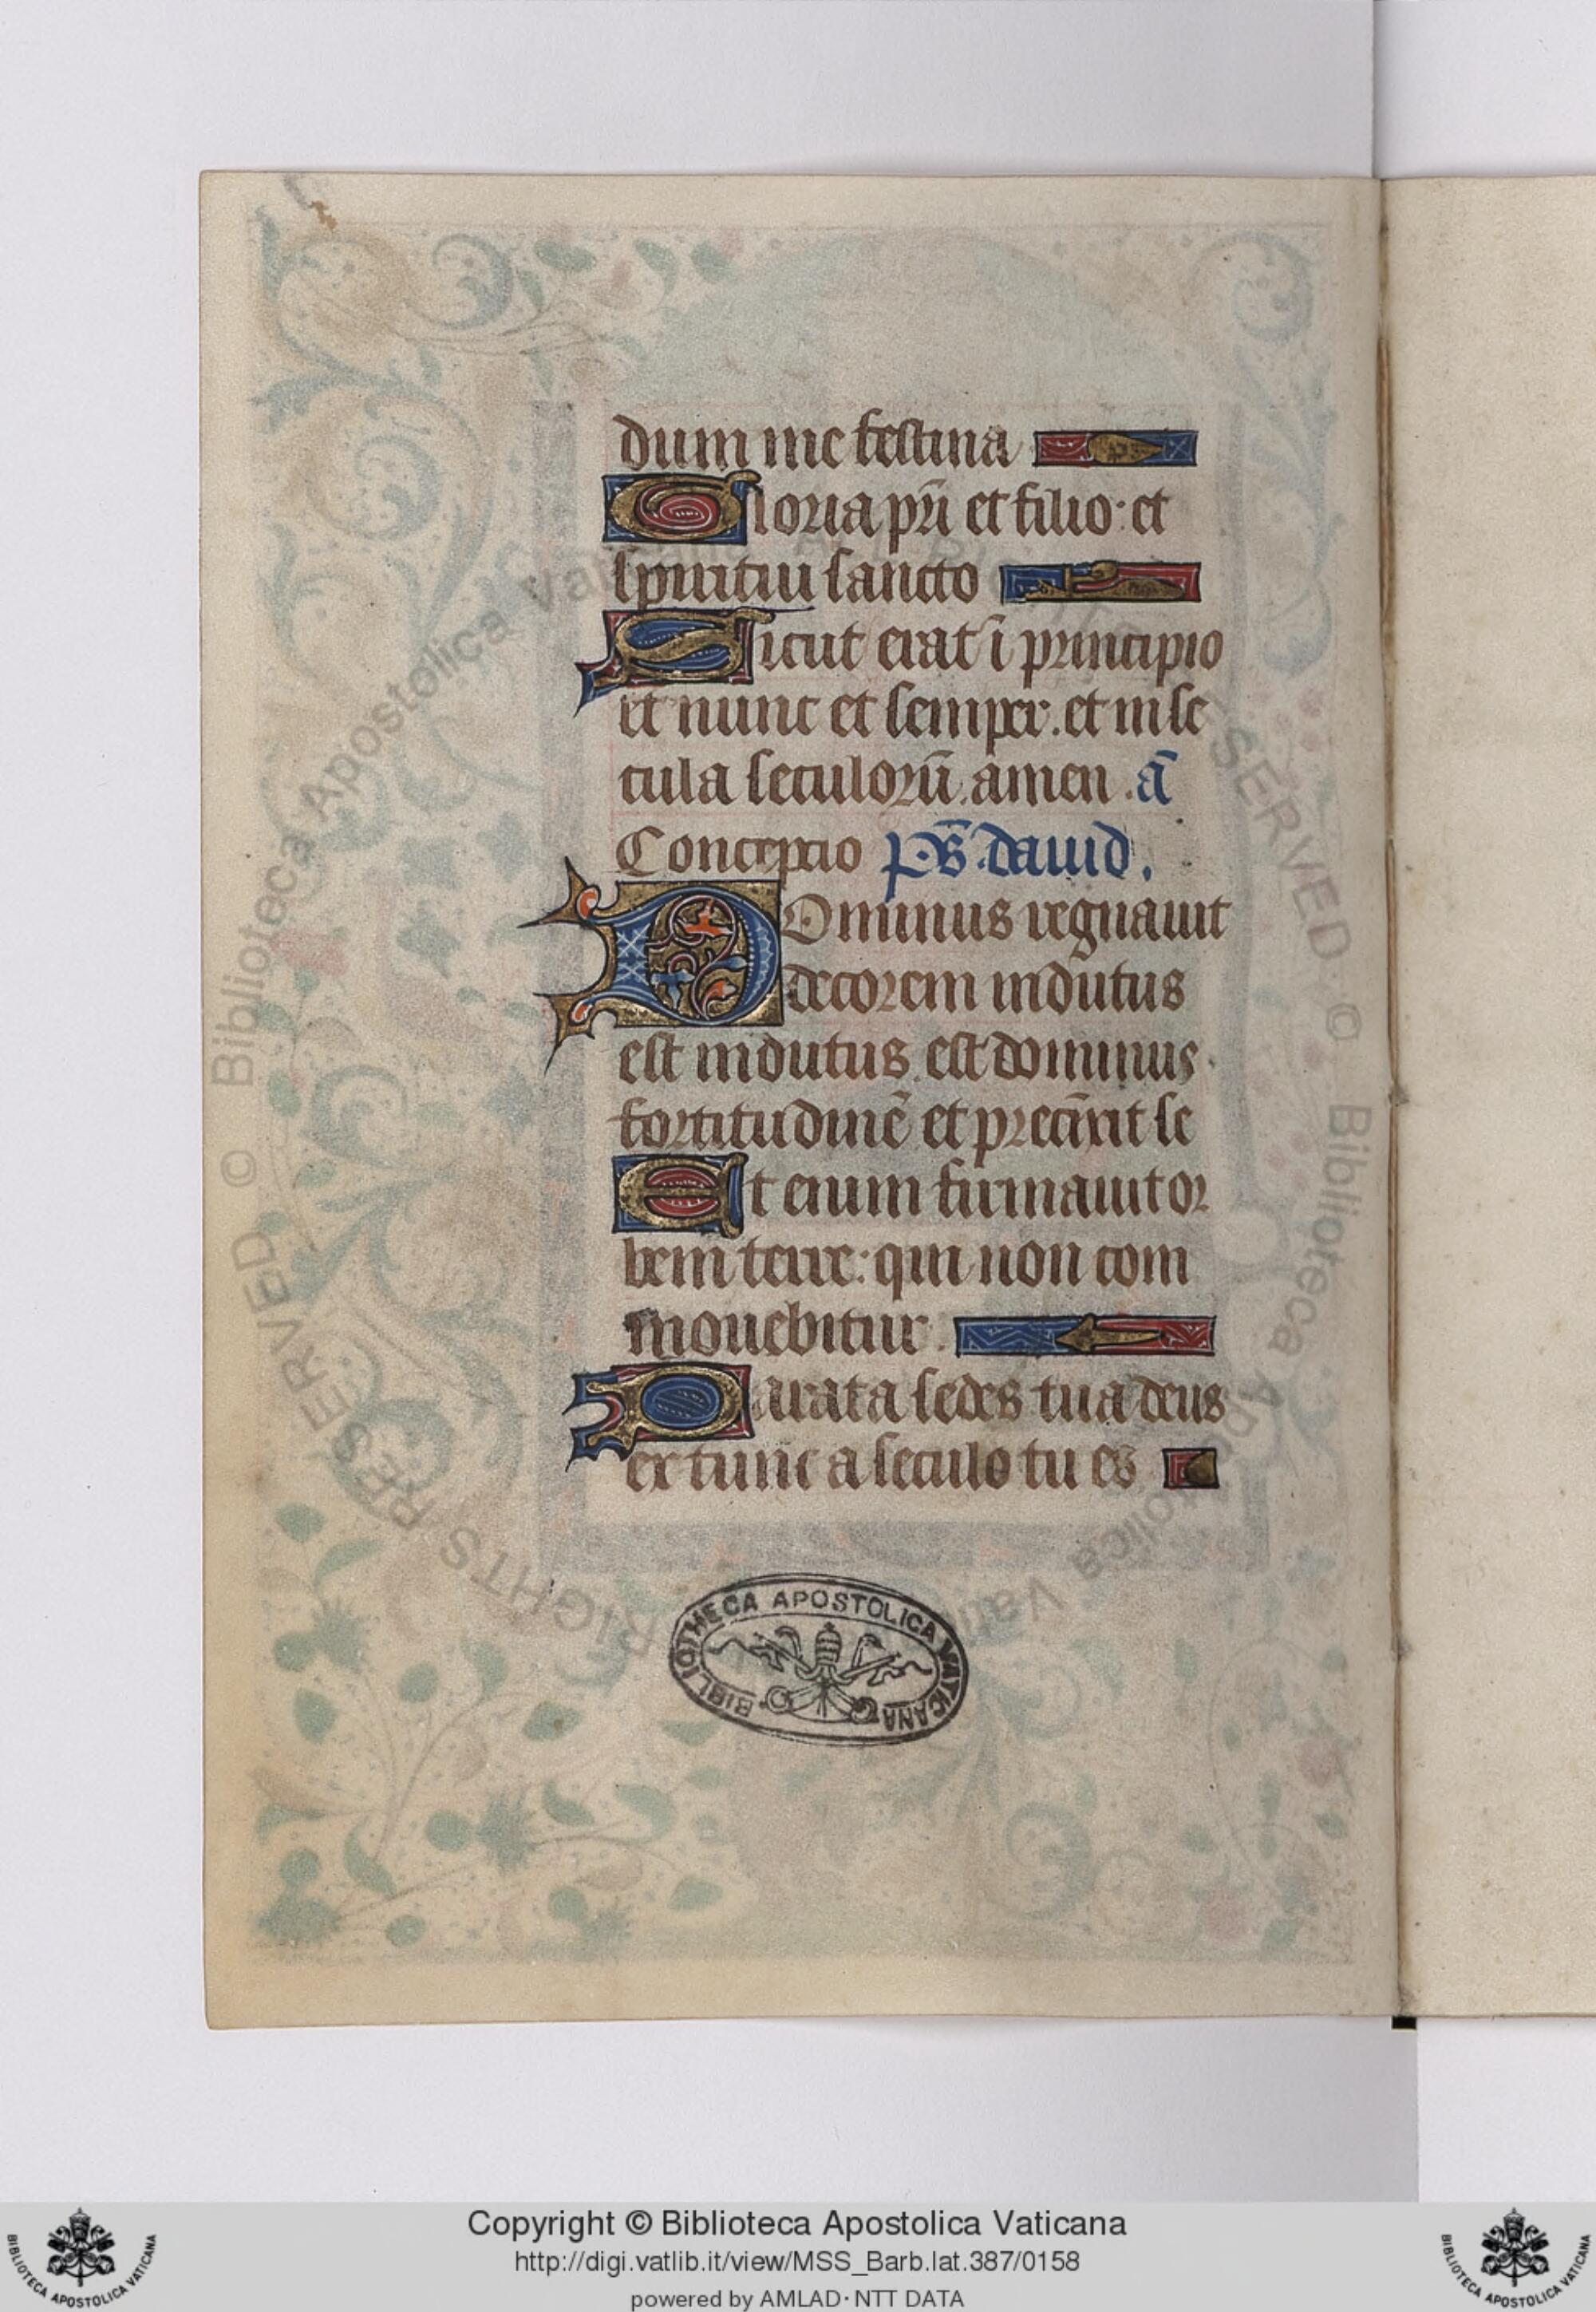 dum me festina
Gloria pr̄i et filio · et
spiritui sancto
Sicut erat ī principio
et nunc et semper . et in se
cula seculorū . amen . ā
Conceptio p̄s̄ . dauid .
Dominus regnauit
decorem indutus
est indutus est dominus
fortitudinē et precīxit se
Et enim firmauit or
bem terre : qui non com
mouebitur .
Parata sedes tua deus
ex tunc a seculo tu es
BIBLIOTHECA APOSTOLICA VATICANA
Copyright © Biblioteca Apostolica Vaticana
http://digi.vatlib.it/view/MSS_Barb.lat.387/0158
powered by AMLAD · NTT DATA
BIBLIOTECA APOSTOLICA VATICANA
BIBLIOTECA APOSTOLICA VATICANA